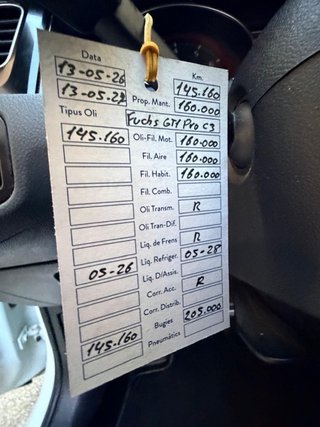 Data Km.
13-05-26 145.160
Prop. Mant. 160.000
Tipus Oli Fuchs GT1 Pro C3
145.160 Oli-Fil. Mot. 160.000
Fil. Aire 160.000
Fil. Habit. 160.000
Fil. Comb.
Oli Transm. R
Oli Tran-Dif.
Liq. de Frens R
05-26 Liq. Refriger. 05-28
Liq. D/Assis.
Corr. Acc. R
Corr. Distrib.
145.160 Bugies 205.000
Pneumàtics